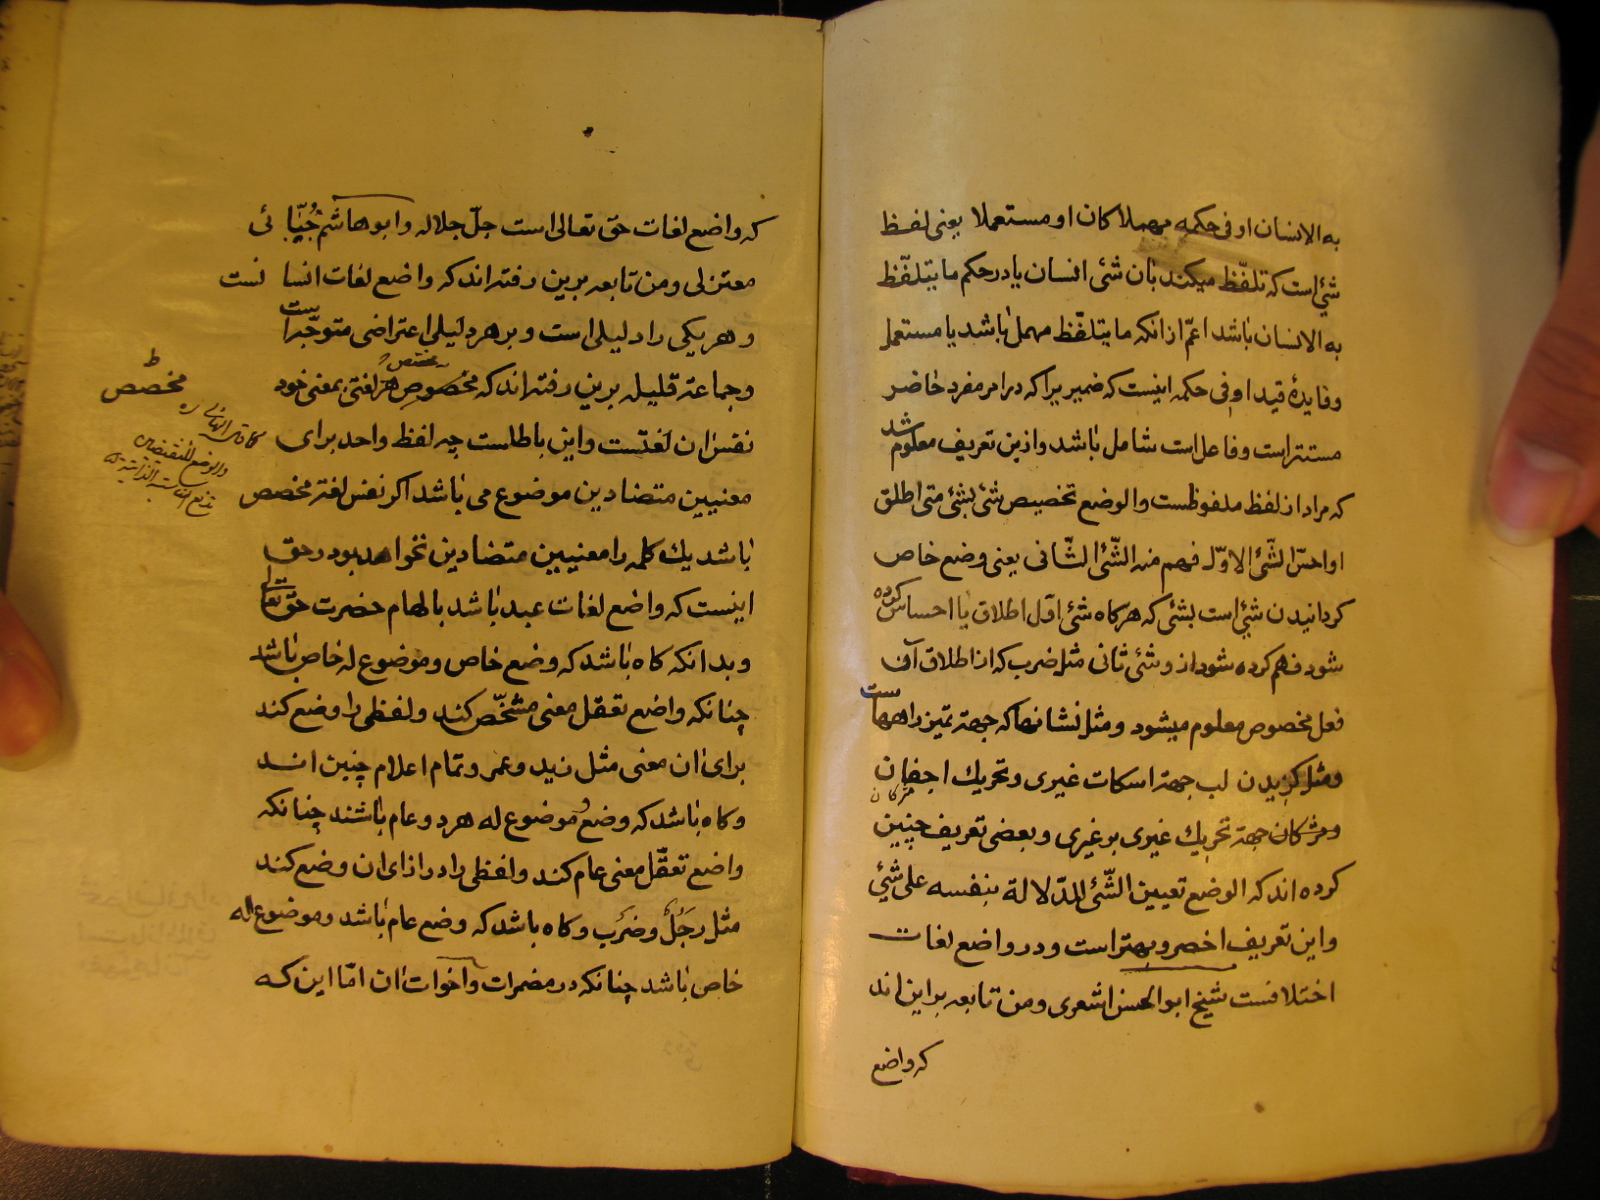 به الانسان او فی حکمه مهملا کان او مستعملا یعنی لفظ
شئ است که تلفّظ میکند بان شئ انسان یا در حکم ما یتلفّظ
به الانسان باشد اعمّ از انکه ما یتلفّظ مهمل باشد یا مستعمل
و فایدهٔ قید او فی حکمه اینست که ضمیر یرا که در امر مفرد حاضر
مستتر است و فاعل است شامل باشد و ازین تعریف معلوم شد
که مراد از لفظ ملفوظست والوضع تخصیص شئ بشئ متی اطلق
او احسّ الشّئ الاوّل فهم منه الشّئ الثّانی یعنی وضع خاص
کردانیدن شئ است بشئ که هرکاه شئ اوّل اطلاق یا احساس کرده
شود فهم کرده شود از و شئ ثانی مثل ضرب که از اطلاق آن
فعل مخصوص معلوم میشود و مثل نشانها که جهة تمیز راههاست
ومثل کزیدن لب جهة اسکات غیری و تحریك اجفان
مژکان
ومژکان جهة تحریك غیری بر غیری و بعضی تعریف چنین
کرده اند که الوضع تعیین الشّئ للدّلالة بنفسه علی شئ
واین تعریف اخصر و بهتر است و در واضع لغات
اختلافست شیخ ابو الحسن اشعری و من تابعه براین اند
که واضع
که واضع لغات حق تعالی است جلّ جلاله و ابو هاشم جُبّائی
معتزلی و من تابعه برین رفته اند که واضع لغات انسانست
و هر یکی را دلیلی است و بر هر دلیلی اعتراضی متوجّه است
مختص
وجماعة قلیله برین رفته اند که مخصوص هر لغتی بمعنی خود
نفس ان لغتست واین باطلست چه لفظ واحد برای
معنیین متضادین موضوع می باشد اکر نفس لغة مخصص
باشد یك کلمه را معنیین متضادین نخواهد بود و حق
اینست که واضع لغات عبد باشد بالهام حضرت حق تعالی
و بدانکه کاه باشد که وضع خاص و موضوع له خاص باشد
چنانکه واضع تعقل معنی مشخّص کند و لفظی را وضع کند
برای ان معنی مثل زید و عمر و تمام اعلام چنین اند
و کاه باشد که وضع و موضوع له هر دو عام باشند چنانکه
واضع تعقّل معنی عام کند و لفظی را در ازای ان وضع کند
مثل رجُلٌ و ضرَب و کاه باشد که وضع عام باشد و موضوع له
خاص باشد چنانکه در مضمرات و اخوات ان امّا این که
ط
مخصص
والوضع للنقیضین